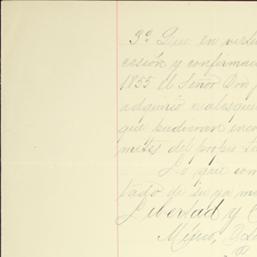 3º Que en virtu
cesión y confirmac
1855 el Señor Don
adquirió cualesqui
que pudieran
del propio
Lo que com
tado de su
Libertad y C
Méjico, Oct